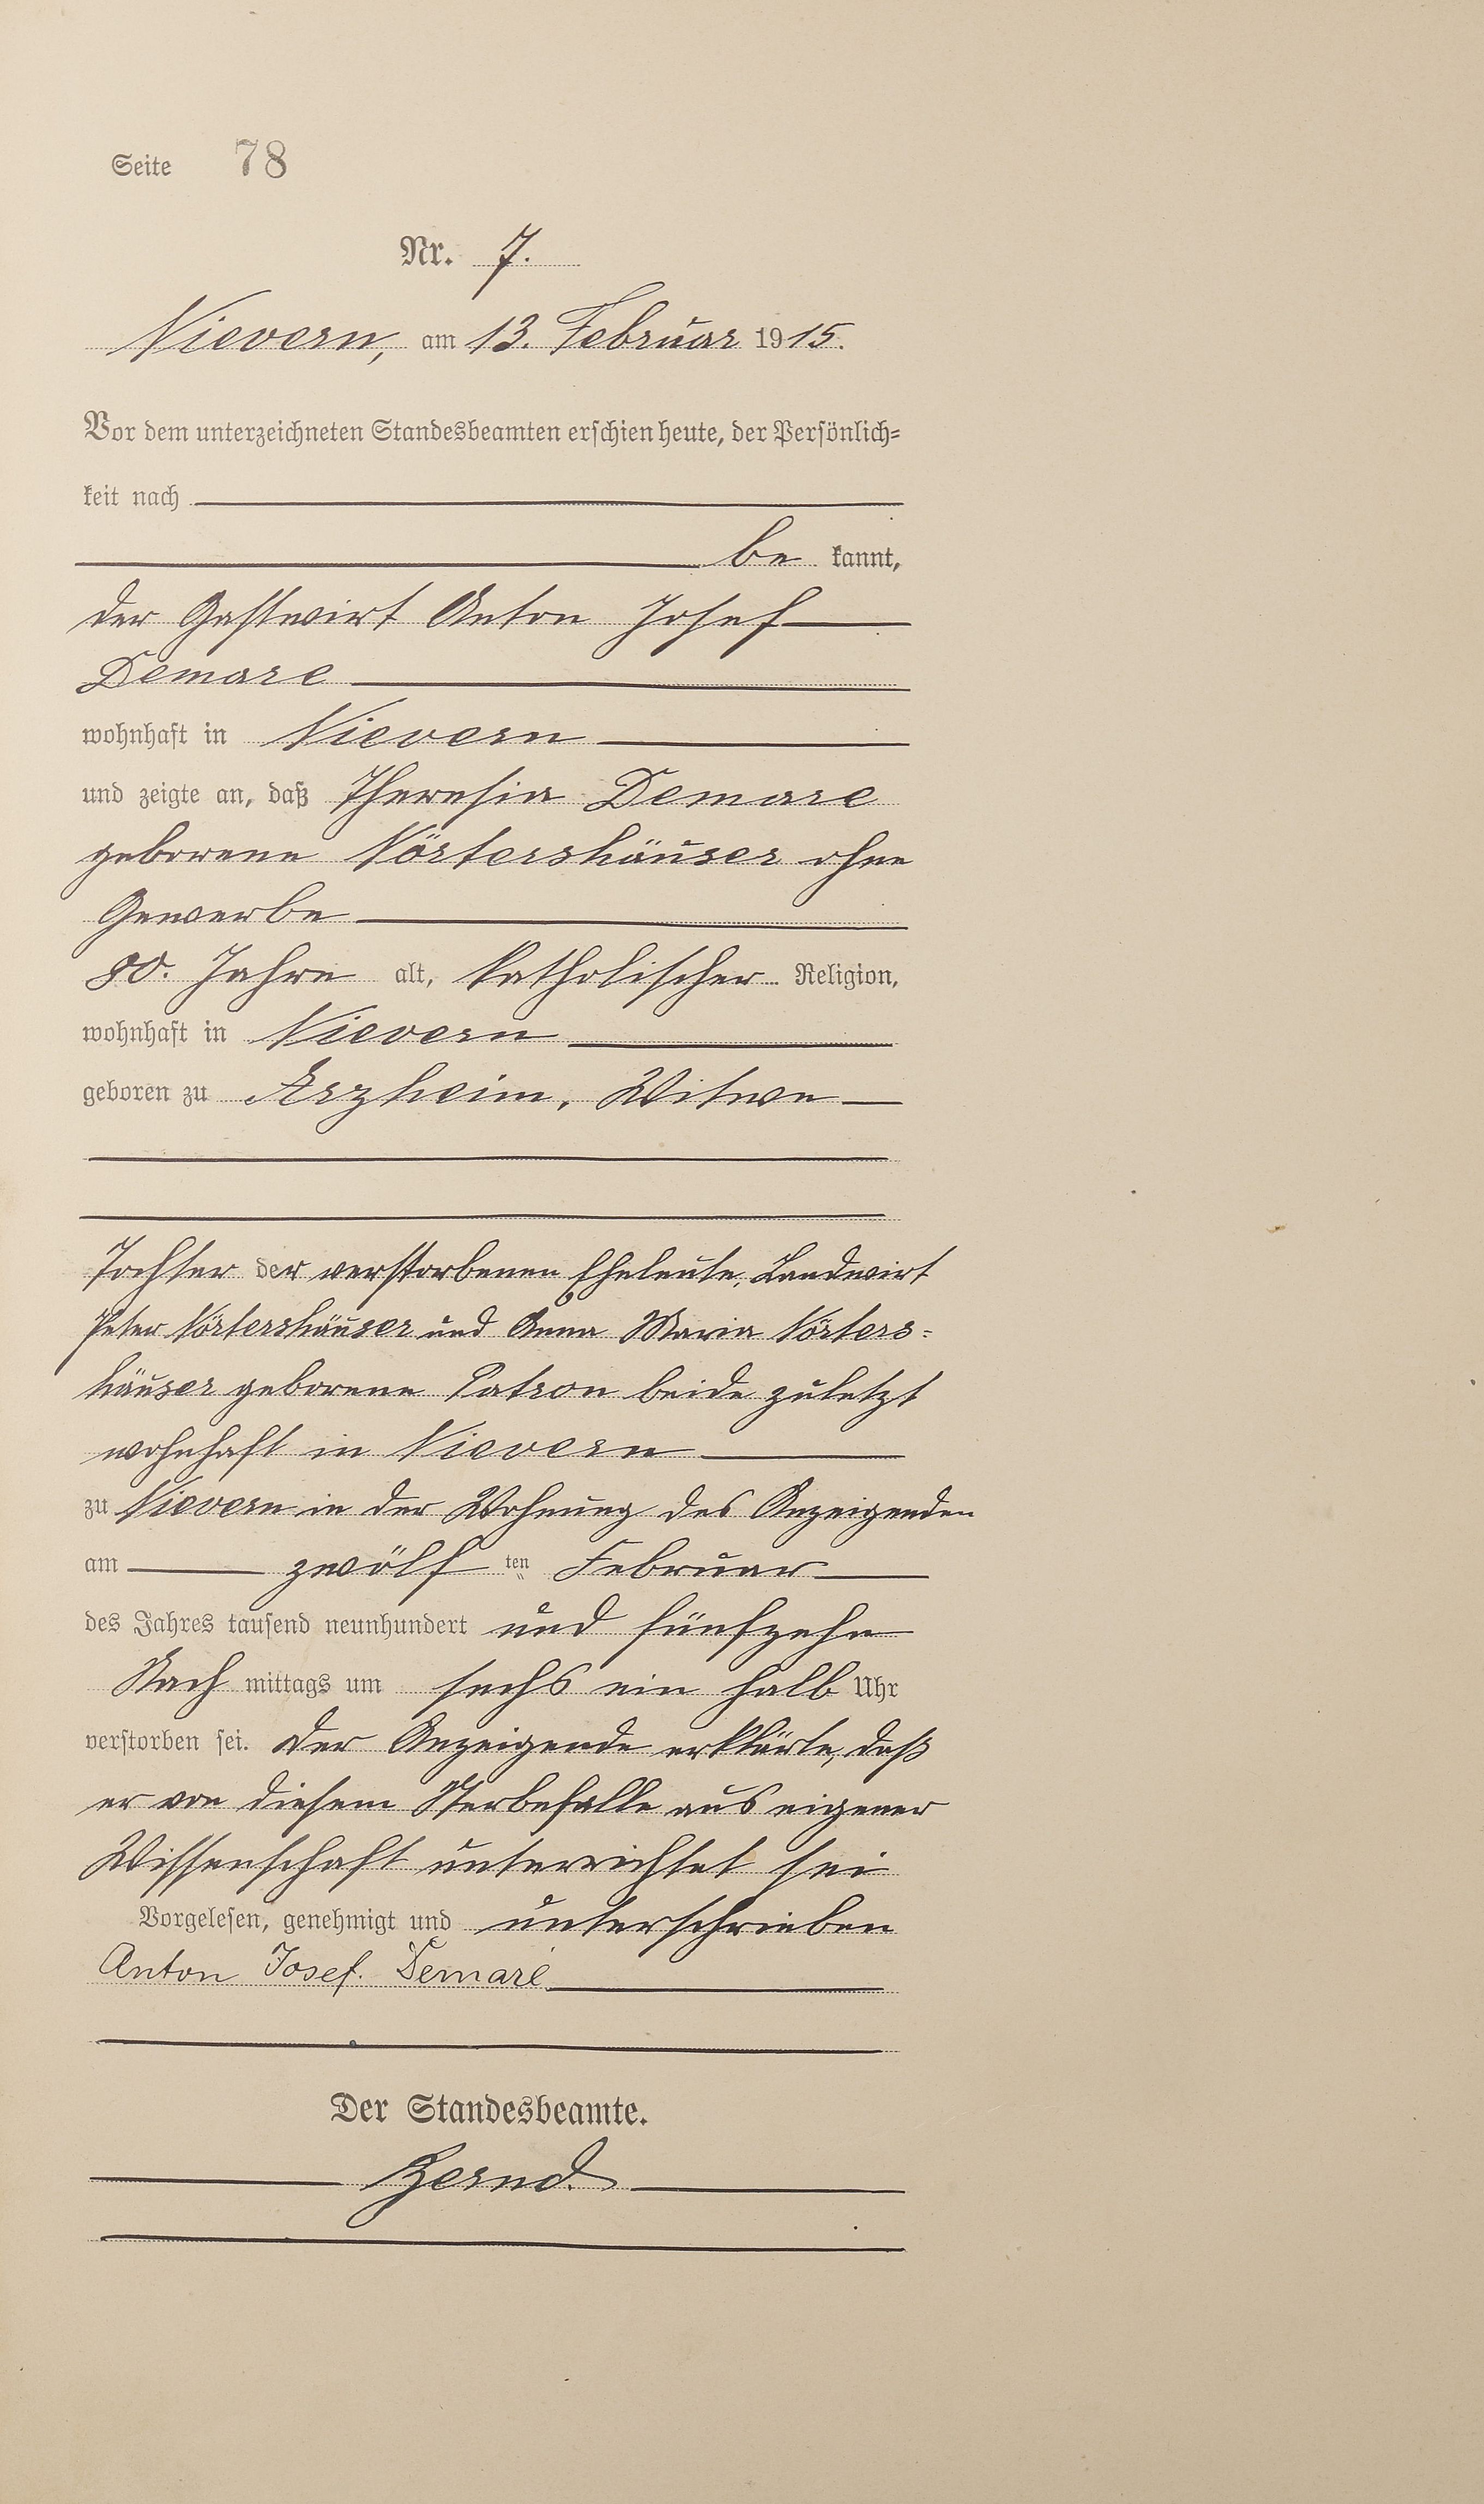 Seite 78
Nr. 7.
Nievern, am 13. Februar 1915.
Vor dem unterzeichneten Standesbeamten erschien heute, der Persönlich=
keit nach
be kannt,
der Gastwirt Anton Josef
Demare
wohnhaft in Nievern
und zeigte an, daß Theresia Demare
geborene Nörtershäuser ohne
Gewerbe
80. Jahre alt, katholischer Religion,
wohnhaft in Nievern
geboren zu Arzheim, Witwe
Tochter der verstorbenen Eheleute, Landwirt
Peter Nörtershäuser und Anna Maria Nörters=
häuser geborene Patron beide zuletzt
wohnhaft in Nievern
zu Nievern in der Wohnung des Anzeigenden
am zwölf ten Februar
des Jahres tausend neunhundert und fünfzehn
Nach mittags um sechs ein halb Uhr
verstorben sei. Der Anzeigende erklärte, daß
er von diesem Sterbefalle aus eigener
Wissenschaft unterrichtet sei
Vorgelesen, genehmigt und unterschrieben
Anton Josef. Demaré
Der Standesbeamte.